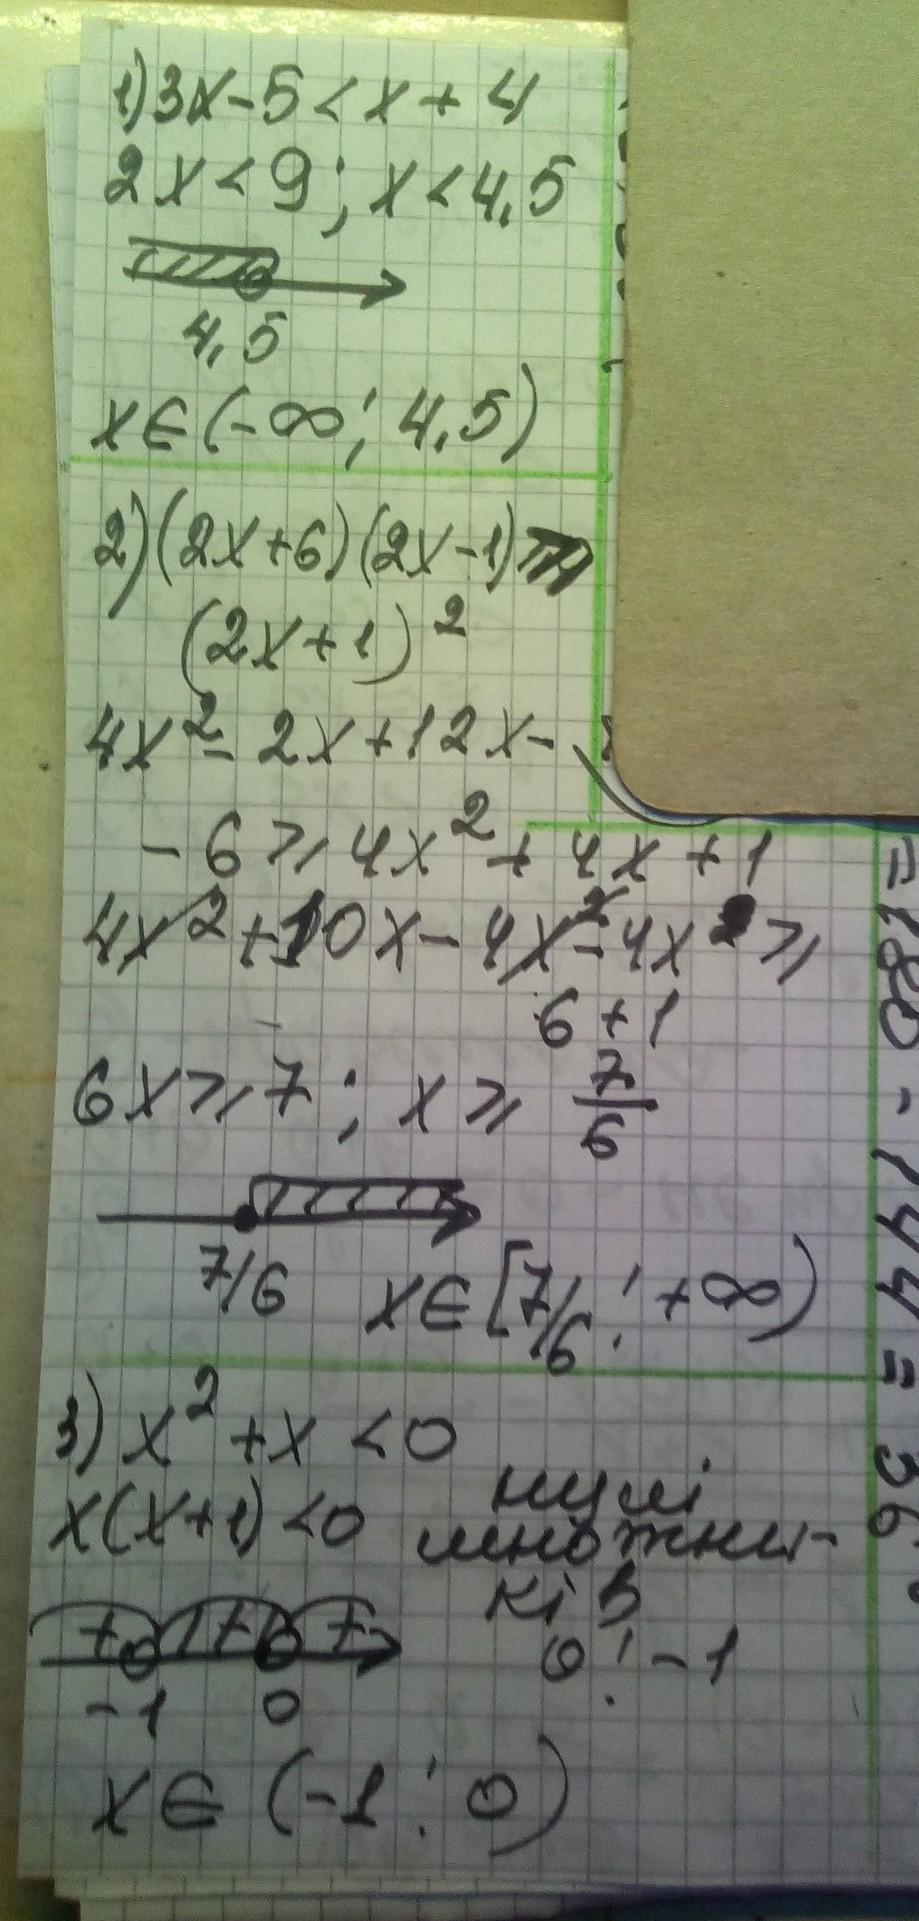 1) 3x - 5 < x + 4
2x < 9 ; x < 4,5
4,5
x ∈ (-∞; 4,5)
2) (2x + 6)(2x - 1) ≥
(2x + 1)²
4x² - 2x + 12x -
- 6 ≥ 4x² + 4x + 1
4x² + 10x - 4x² - 4x ≥
6 + 1
6x ≥ 7 ; x ≥ 7/6
7/6 x ∈ [7/6; +∞)
3) x² + x < 0
x(x+1) < 0 нулі
множни-
ків
0; -1
-1 0
x ∈ (-1; 0)
= 180 - 144 = 36